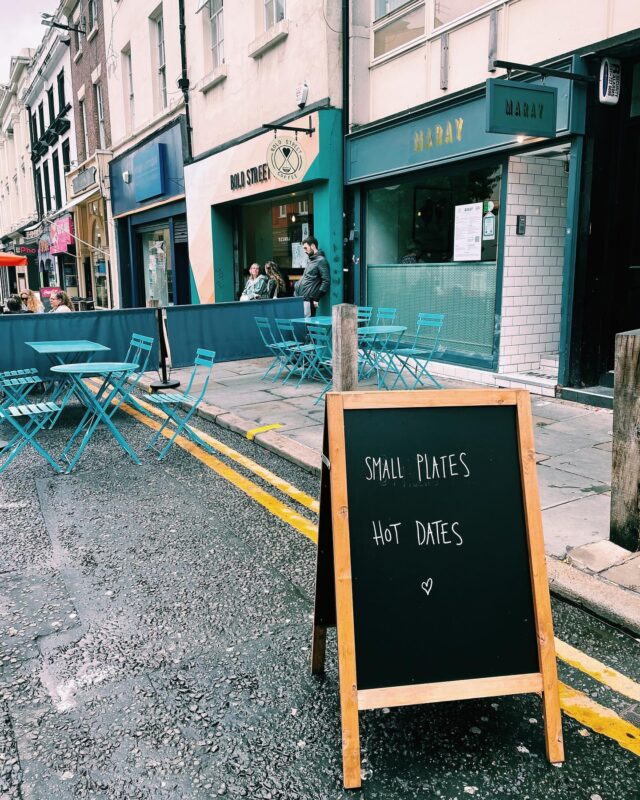 MARAY
MARAY
BOLD STREET
BOLD STREET
COFFEE
Pho
SMALL PLATES
HOT DATES